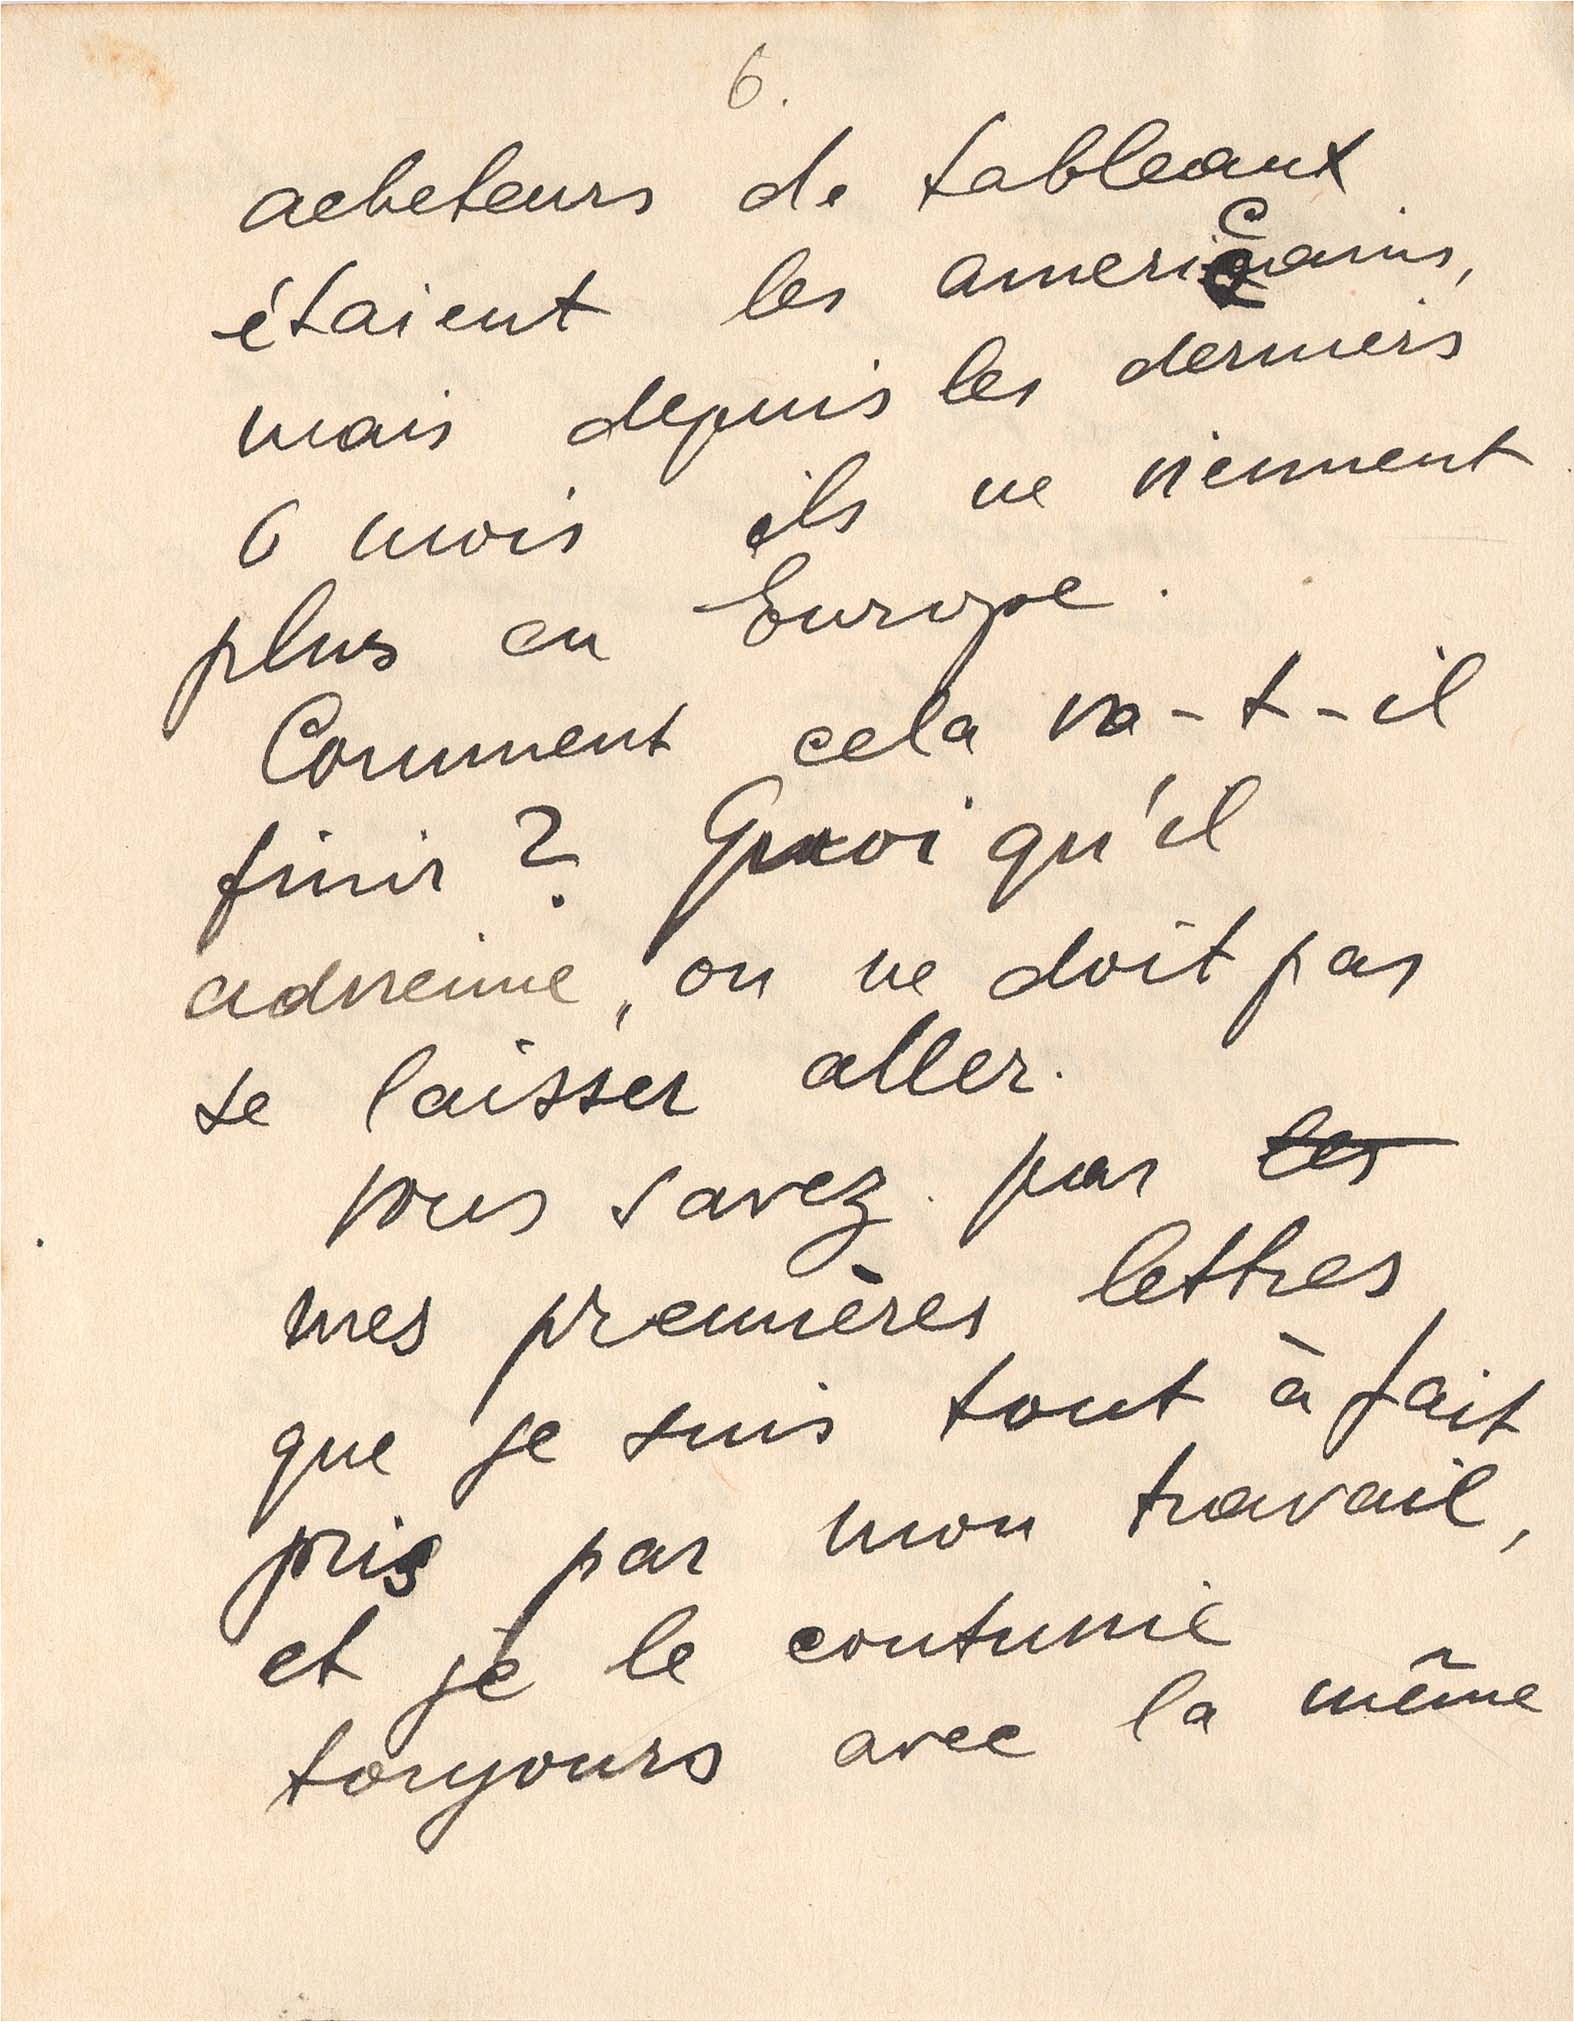 6.
acheteurs de tableaux
étaient les americains,
mais depuis les derniers
6 mois ils ne viennent
plus en Europe.
Comment cela va-t-il
finir ? Quoi qu'il
advienne, on ne doit pas
se laisser aller.
Vous savez par les
mes premières lettres
que je suis tout à fait
pris par mon travail,
et je le continue
toujours avec la même